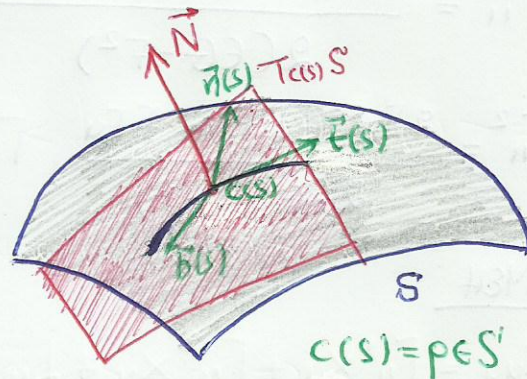 N⃗
n⃗(s) T_{c(s)}S
t⃗(s)
c(s)
b⃗(s)
S
c(s)=p∈S